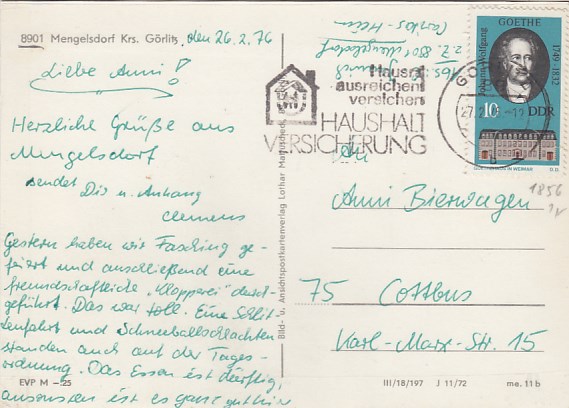 8901 Mengelsdorf Krs. Görlitz, den 26.2.76
Liebe Anni!
Herzliche Grüße aus
Mengelsdorf
sendet
Dir u. Anhang
Clemens
Gestern haben wir Fasching ge-
feiert und anschließend eine
freundschaftliche „Klopperei" durch-
geführt. Das war toll. Eine Schlit-
tenfahrt und Schneeballschlachten
standen auch auf der Tages-
ordnung. Das Essen ist dürftig,
ansonsten ist es ganz gut hier
EVP M – 25
Bild- u. Ansichtskartenverlag Lothar
z. Z. 8901 Mengelsdorf
Hausrat
ausreichend
versichern
HAUSHALT
VERSICHERUNG
Johann Wolfgang
GOETHE
1749-1832
10 DDR
An
Anni Bierwagen
1856
75 Cottbus
Karl-Marx-Str. 15
III/18/197 J 11/72 me. 11 b